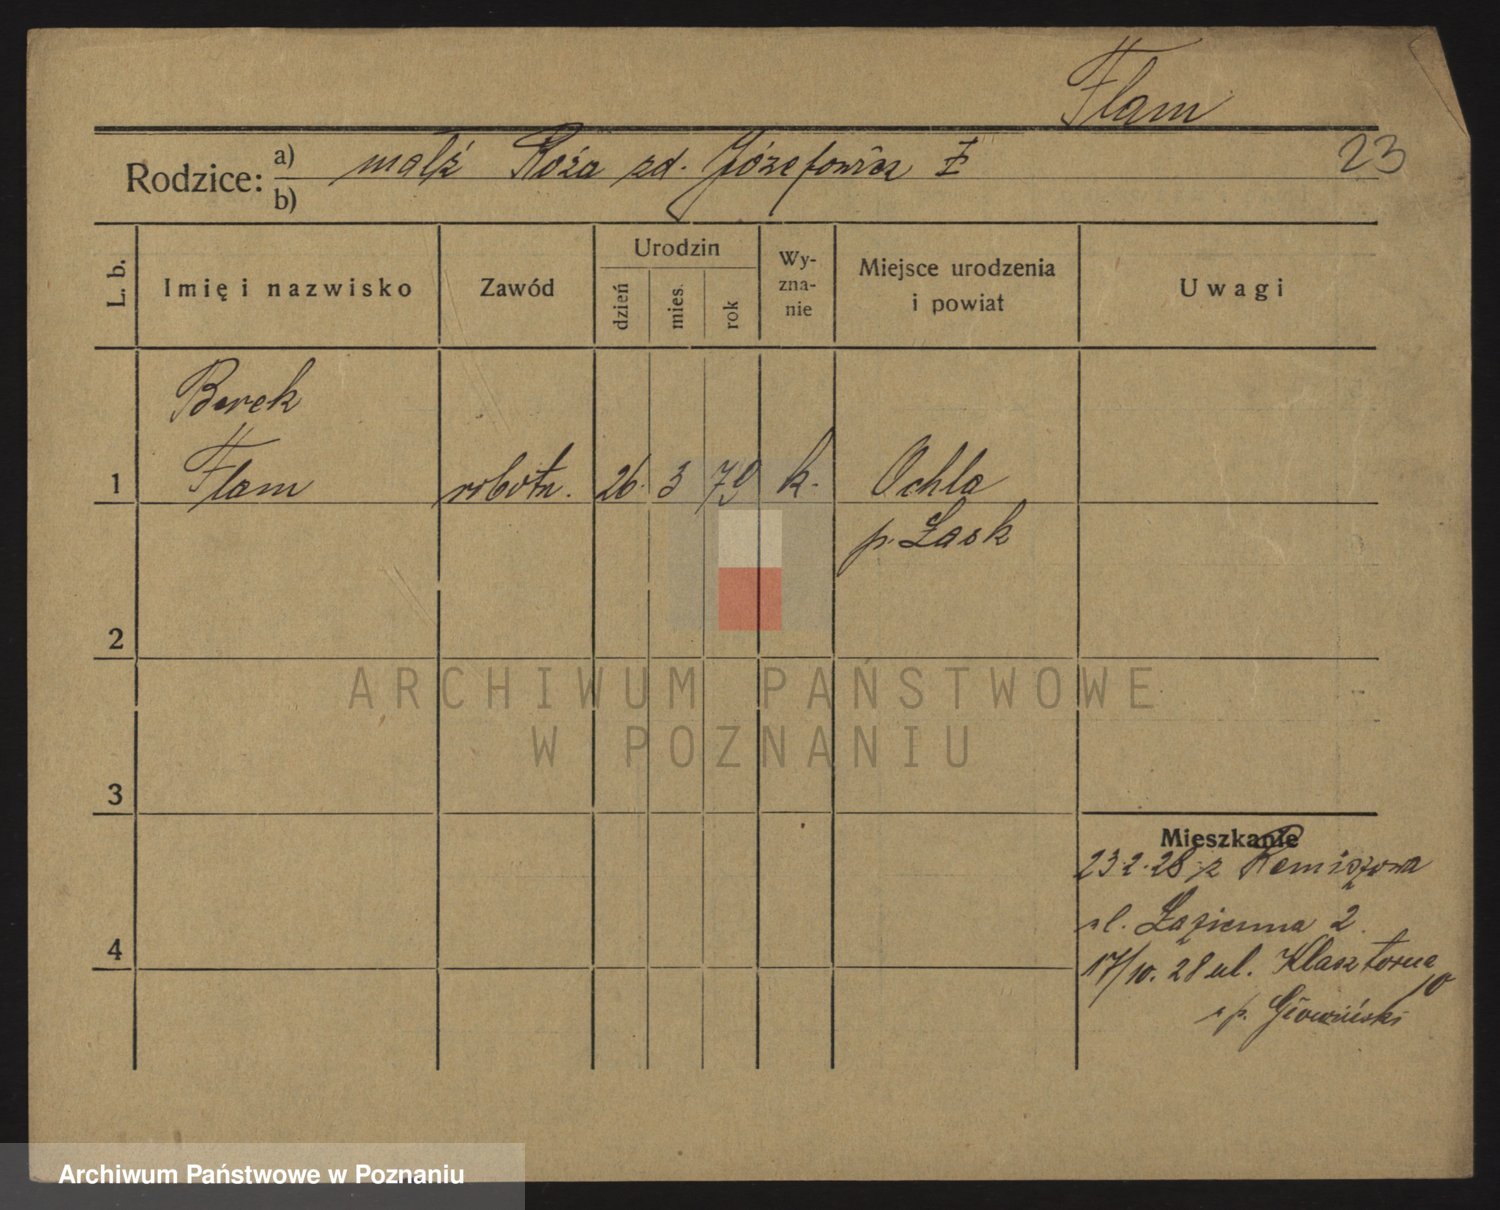 Flam
23
Rodzice: a) małż Róża zd. Józefowicz
b)
L. b.
Imię i nazwisko
Zawód
Urodzin
dzień
mies.
rok
Wy-
zna-
nie
Miejsce urodzenia
i powiat
Uwagi
Berek
1 Flam robotn. 26. 3 79 k. Ochla
p. Łask
2
ARCHIWUM PAŃSTWOWE
W POZNANIU
3
Mieszkanie
23.2.28 z
ul. Łazienna 2
4
17/10.28 ul. Klasztorna
10
Archiwum Państwowe w Poznaniu